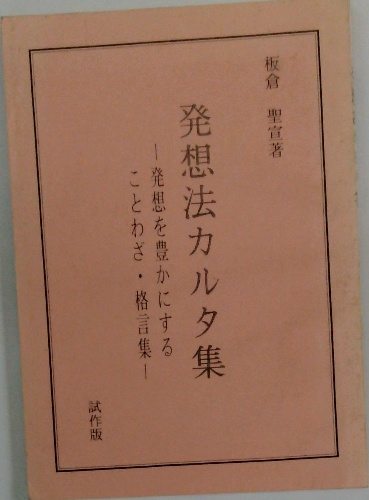 板倉 聖宣著
発想法カルタ集
―発想を豊かにする
ことわざ・格言集―
試作版